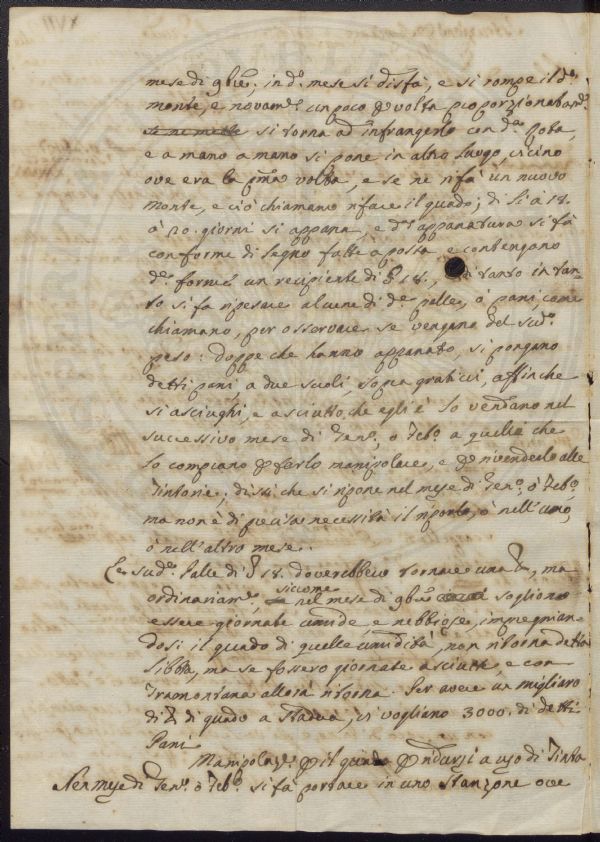 mese di 9bre. in do. mese si disfà, e si rompe il do.
monte, e novamte un poco per volta proporzionatamte.
se ne mette si torna ad infrangerlo con da. roba,
e a mano a mano si pone in altro luogo, vicino
ove era la pma volta, e se ne rifà un nuovo
monte, e ciò chiamano rifare il guado; di lì a 18.
ò 20. giorni si appana, e da. appanatura si fà
con forme di legno fatte a posta e contengono
de. forme un recipiente di 18., di tanto in tan-
to si fa ripesare alcune di de. palle, ò pani come
chiamano, per osservare se vengano del sudo.
peso: doppo che hanno appanato, si pongano
detti pani, a due suoli, sopra graticci, affinche
si asciughi, e asciutto che egli è lo vendano nel
successivo mese di Geno. ò Febo. a quelli che
lo comprano per farlo manipolare, e per rivenderlo alle
Tintorie. dissi che si ripone nel mese di Geno. ò Febo.
ma non è di precisa necessità il riporlo, ò nell'uno,
ò nell'altro mese.
Le sude. Palle di 18. doverebbero tornare una, ma
ordinariamte, siccome nel mese di 9bre sogliono
essere giornate umide, e nebbiose, impregnian-
dosi il guado di quella umidità, non ritorna detta
libbra, ma se fossero giornate asciutte, e con
Tramontana allora ritorna. Per avere un migliaro
di di guado a stadera, ci vogliano 3000. di detti
Pani
Manipolaze. per il guado per ridurzi a uso di Tinta
Nel mese di Geno. ò Febo. si fà portare in uno stanzone ove